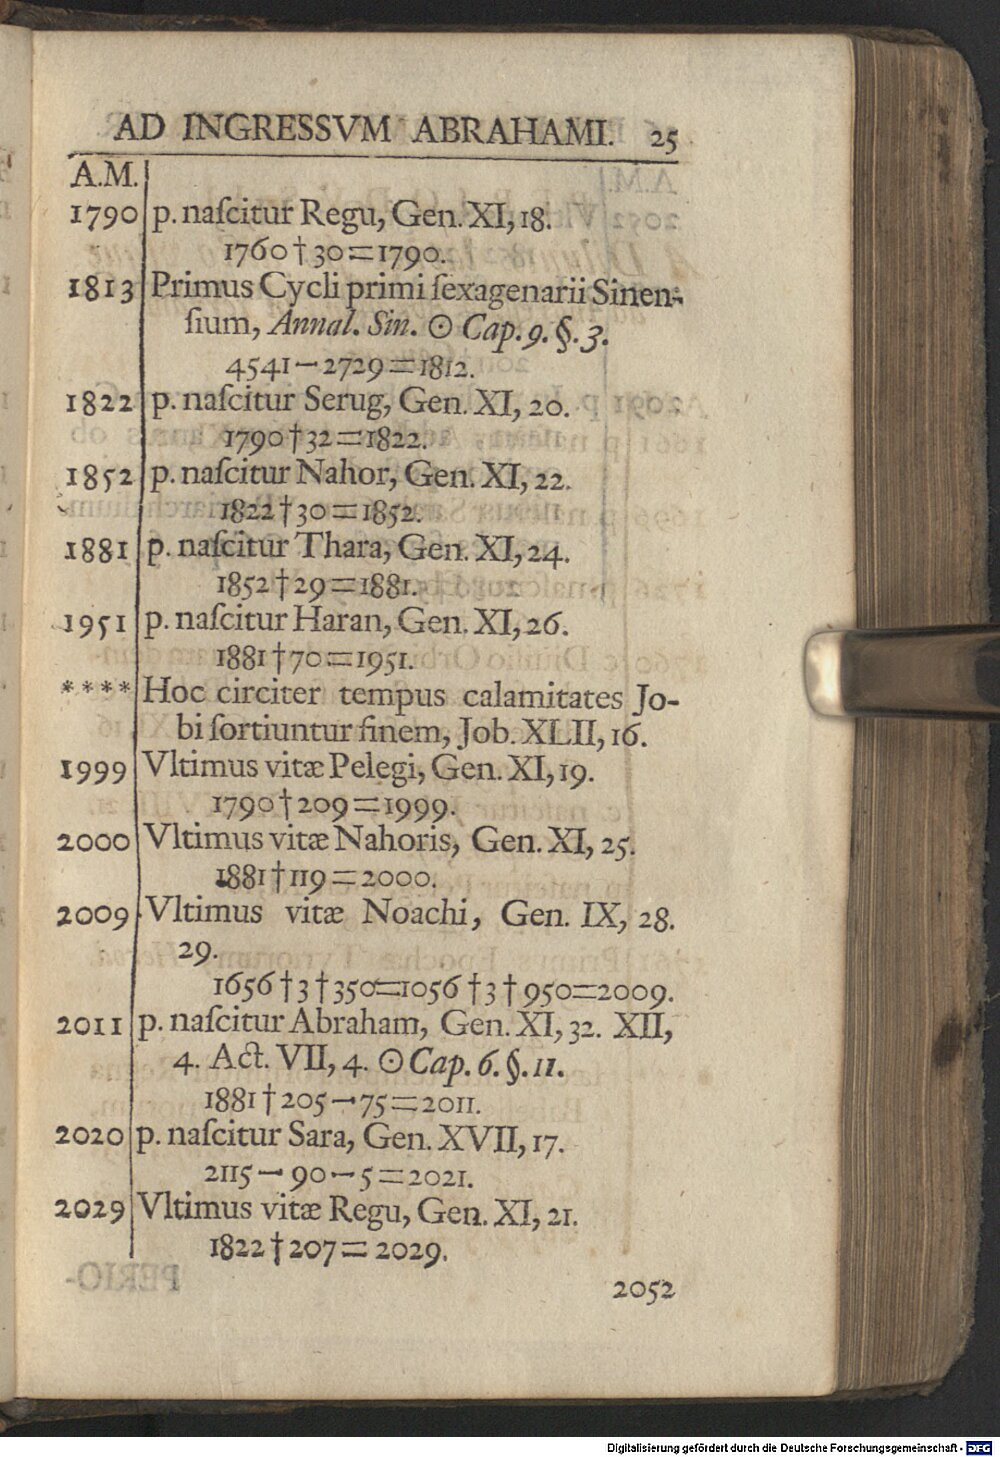 AD INGRESSVM ABRAHAMI. 25
A.M.
1790 p. naſcitur Regu, Gen. XI, 18.
1760 † 30 = 1790.
1813 Primus Cycli primi ſexagenarii Sinen-
ſium, Annal. Sin. ☉ Cap. 9. §. 3.
4541 — 2729 = 1812.
1822 p. naſcitur Serug, Gen. XI, 20.
1790 † 32 = 1822.
1852 p. naſcitur Nahor, Gen. XI, 22.
1822 † 30 = 1852.
1881 p. naſcitur Thara, Gen. XI, 24.
1852 † 29 = 1881.
1951 p. naſcitur Haran, Gen. XI, 26.
1881 † 70 = 1951.
**** Hoc circiter tempus calamitates Jo-
bi ſortiuntur finem, Job. XLII, 16.
1999 Vltimus vitæ Pelegi, Gen. XI, 19.
1790 † 209 = 1999.
2000 Vltimus vitæ Nahoris, Gen. XI, 25.
1881 † 119 = 2000.
2009 Vltimus vitæ Noachi, Gen. IX, 28.
29.
1656 † 3 † 350 = 1056 † 3 † 950 = 2009.
2011 p. naſcitur Abraham, Gen. XI, 32. XII,
4. Act. VII, 4. ☉ Cap. 6. §. 11.
1881 † 205 — 75 = 2011.
2020 p. naſcitur Sara, Gen. XVII, 17.
2115 — 90 — 5 = 2021.
2029 Vltimus vitæ Regu, Gen. XI, 21.
1822 † 207 = 2029.
2052
Digitalisierung gefördert durch die Deutsche Forschungsgemeinschaft - DFG